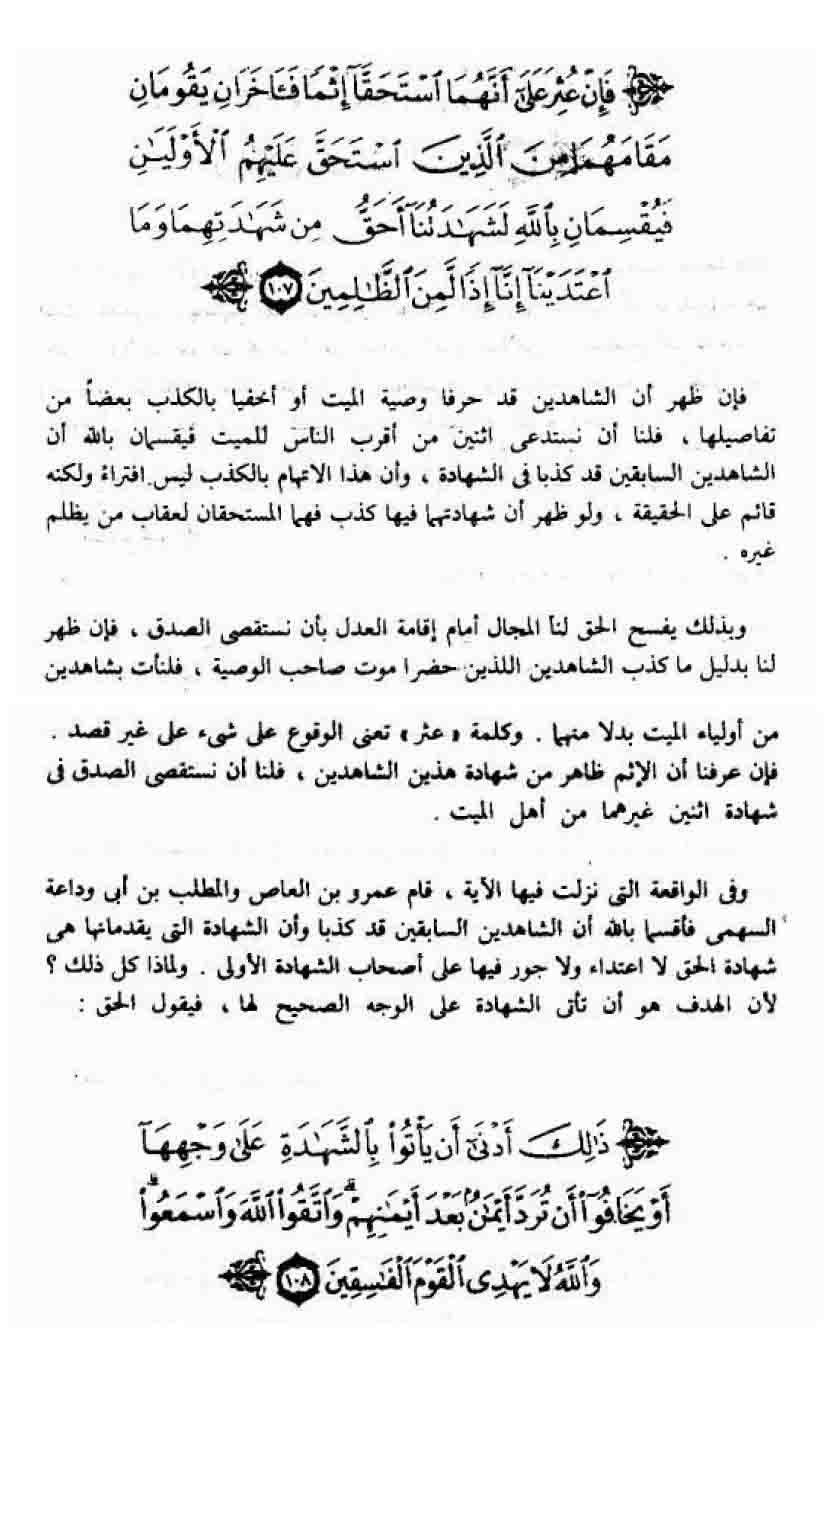 فَإِنْ عُثِرَ عَلَىٰٓ أَنَّهُمَا ٱسْتَحَقَّآ إِثْمًا فَـَٔاخَرَانِ يَقُومَانِ
مَقَامَهُمَا مِنَ ٱلَّذِينَ ٱسْتَحَقَّ عَلَيْهِمُ ٱلْأَوْلَيَـٰنِ
فَيُقْسِمَانِ بِٱللَّهِ لَشَهَـٰدَتُنَآ أَحَقُّ مِن شَهَـٰدَتِهِمَا وَمَا
ٱعْتَدَيْنَآ إِنَّآ إِذًا لَّمِنَ ٱلظَّـٰلِمِينَ ١٠٧
فإن ظهر أن الشاهدين قد حرفا وصية الميت أو أخفيا بالكذب بعضاً من
تفاصيلها ، فلنا أن نستدعى اثنين من أقرب الناس للميت فيقسمان بالله أن
الشاهدين السابقين قد كذبا فى الشهادة ، وأن هذا الاتهام بالكذب ليس افتراءً ولكنه
قائم على الحقيقة ، ولو ظهر أن شهادتهما فيها كذب فهما المستحقان لعقاب من يظلم
غيره .
وبذلك يفسح الحق لنا المجال أمام إقامة العدل بأن نستقصى الصدق ، فإن ظهر
لنا بدليل ما كذب الشاهدين اللذين حضرا موت صاحب الوصية ، فلنأت بشاهدين
من أولياء الميت بدلا منهما . وكلمة « عثر » تعنى الوقوع على شىء على غير قصد .
فإن عرفنا أن الإثم ظاهر من شهادة هذين الشاهدين ، فلنا أن نستقصى الصدق فى
شهادة اثنين غيرهما من أهل الميت .
وفى الواقعة التى نزلت فيها الآية ، قام عمرو بن العاص والمطلب بن أبى وداعة
السهمى فأقسما بالله أن الشاهدين السابقين قد كذبا وأن الشهادة التى يقدمانها هى
شهادة الحق لا اعتداء ولا جور فيها على أصحاب الشهادة الأولى . ولماذا كل ذلك ؟
لأن الهدف هو أن تأتى الشهادة على الوجه الصحيح لها ، فيقول الحق :
ذَٰلِكَ أَدْنَىٰٓ أَن يَأْتُوا۟ بِٱلشَّهَـٰدَةِ عَلَىٰ وَجْهِهَآ
أَوْ يَخَافُوٓا۟ أَن تُرَدَّ أَيْمَـٰنٌۢ بَعْدَ أَيْمَـٰنِهِمْ ۗ وَٱتَّقُوا۟ ٱللَّهَ وَٱسْمَعُوا۟ ۗ
وَٱللَّهُ لَا يَهْدِى ٱلْقَوْمَ ٱلْفَـٰسِقِينَ ١٠٨